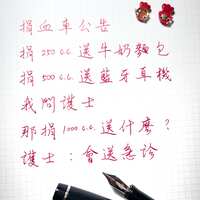 捐血車公告
捐250 c.c.送牛奶麵包
捐500 c.c.送藍牙耳機
我問護士
那捐1000 c.c.送什麼？
護士：會送急診